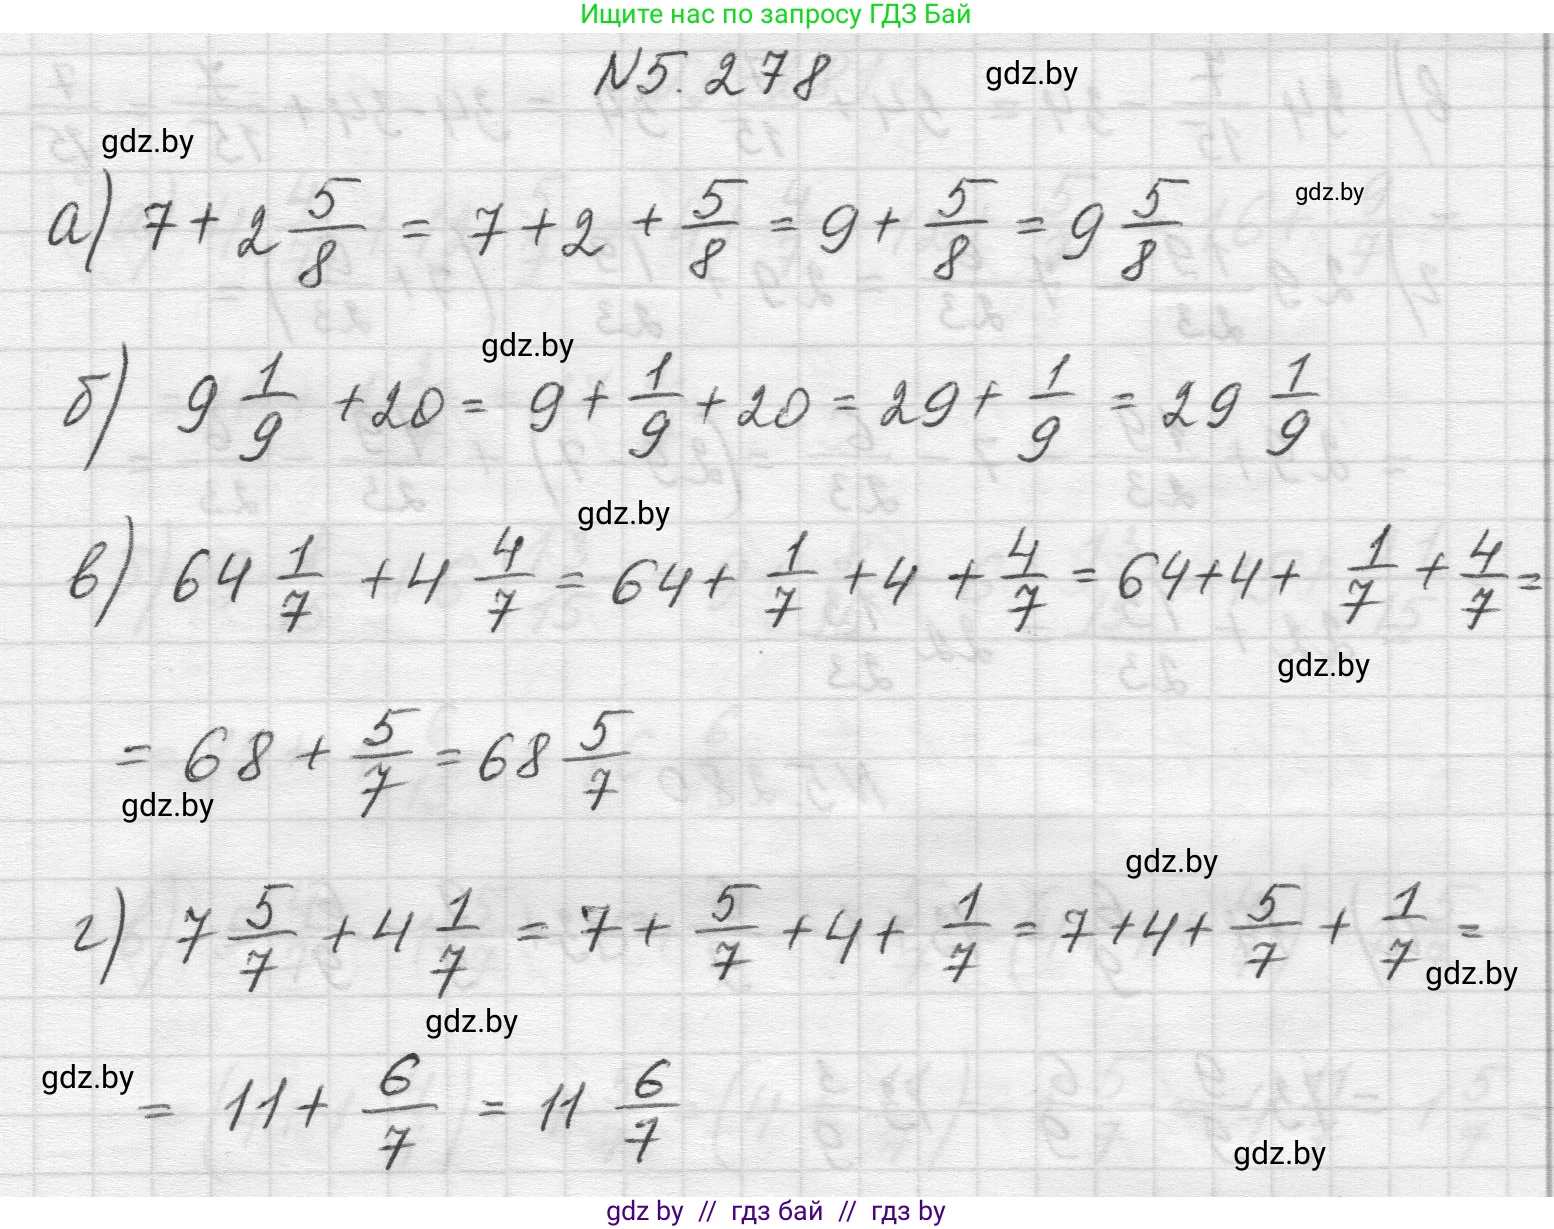 Ищите нас по запросу ГДЗ Бай
N5.278
gdz.by
gdz.by
а) 7 + 2 5/8 = 7 + 2 + 5/8 = 9 + 5/8 = 9 5/8
gdz.by
gdz.by
б) 9 1/9 + 20 = 9 + 1/9 + 20 = 29 + 1/9 = 29 1/9
gdz.by
в) 64 1/7 + 4 4/7 = 64 + 1/7 + 4 + 4/7 = 64 + 4 + 1/7 + 4/7 =
gdz.by
= 68 + 5/7 = 68 5/7
gdz.by
gdz.by
г) 7 5/7 + 4 1/7 = 7 + 5/7 + 4 + 1/7 = 7 + 4 + 5/7 + 1/7 =
gdz.by
gdz.by
gdz.by
= 11 + 6/7 = 11 6/7
gdz.by
gdz by // гдз бай // гдз by